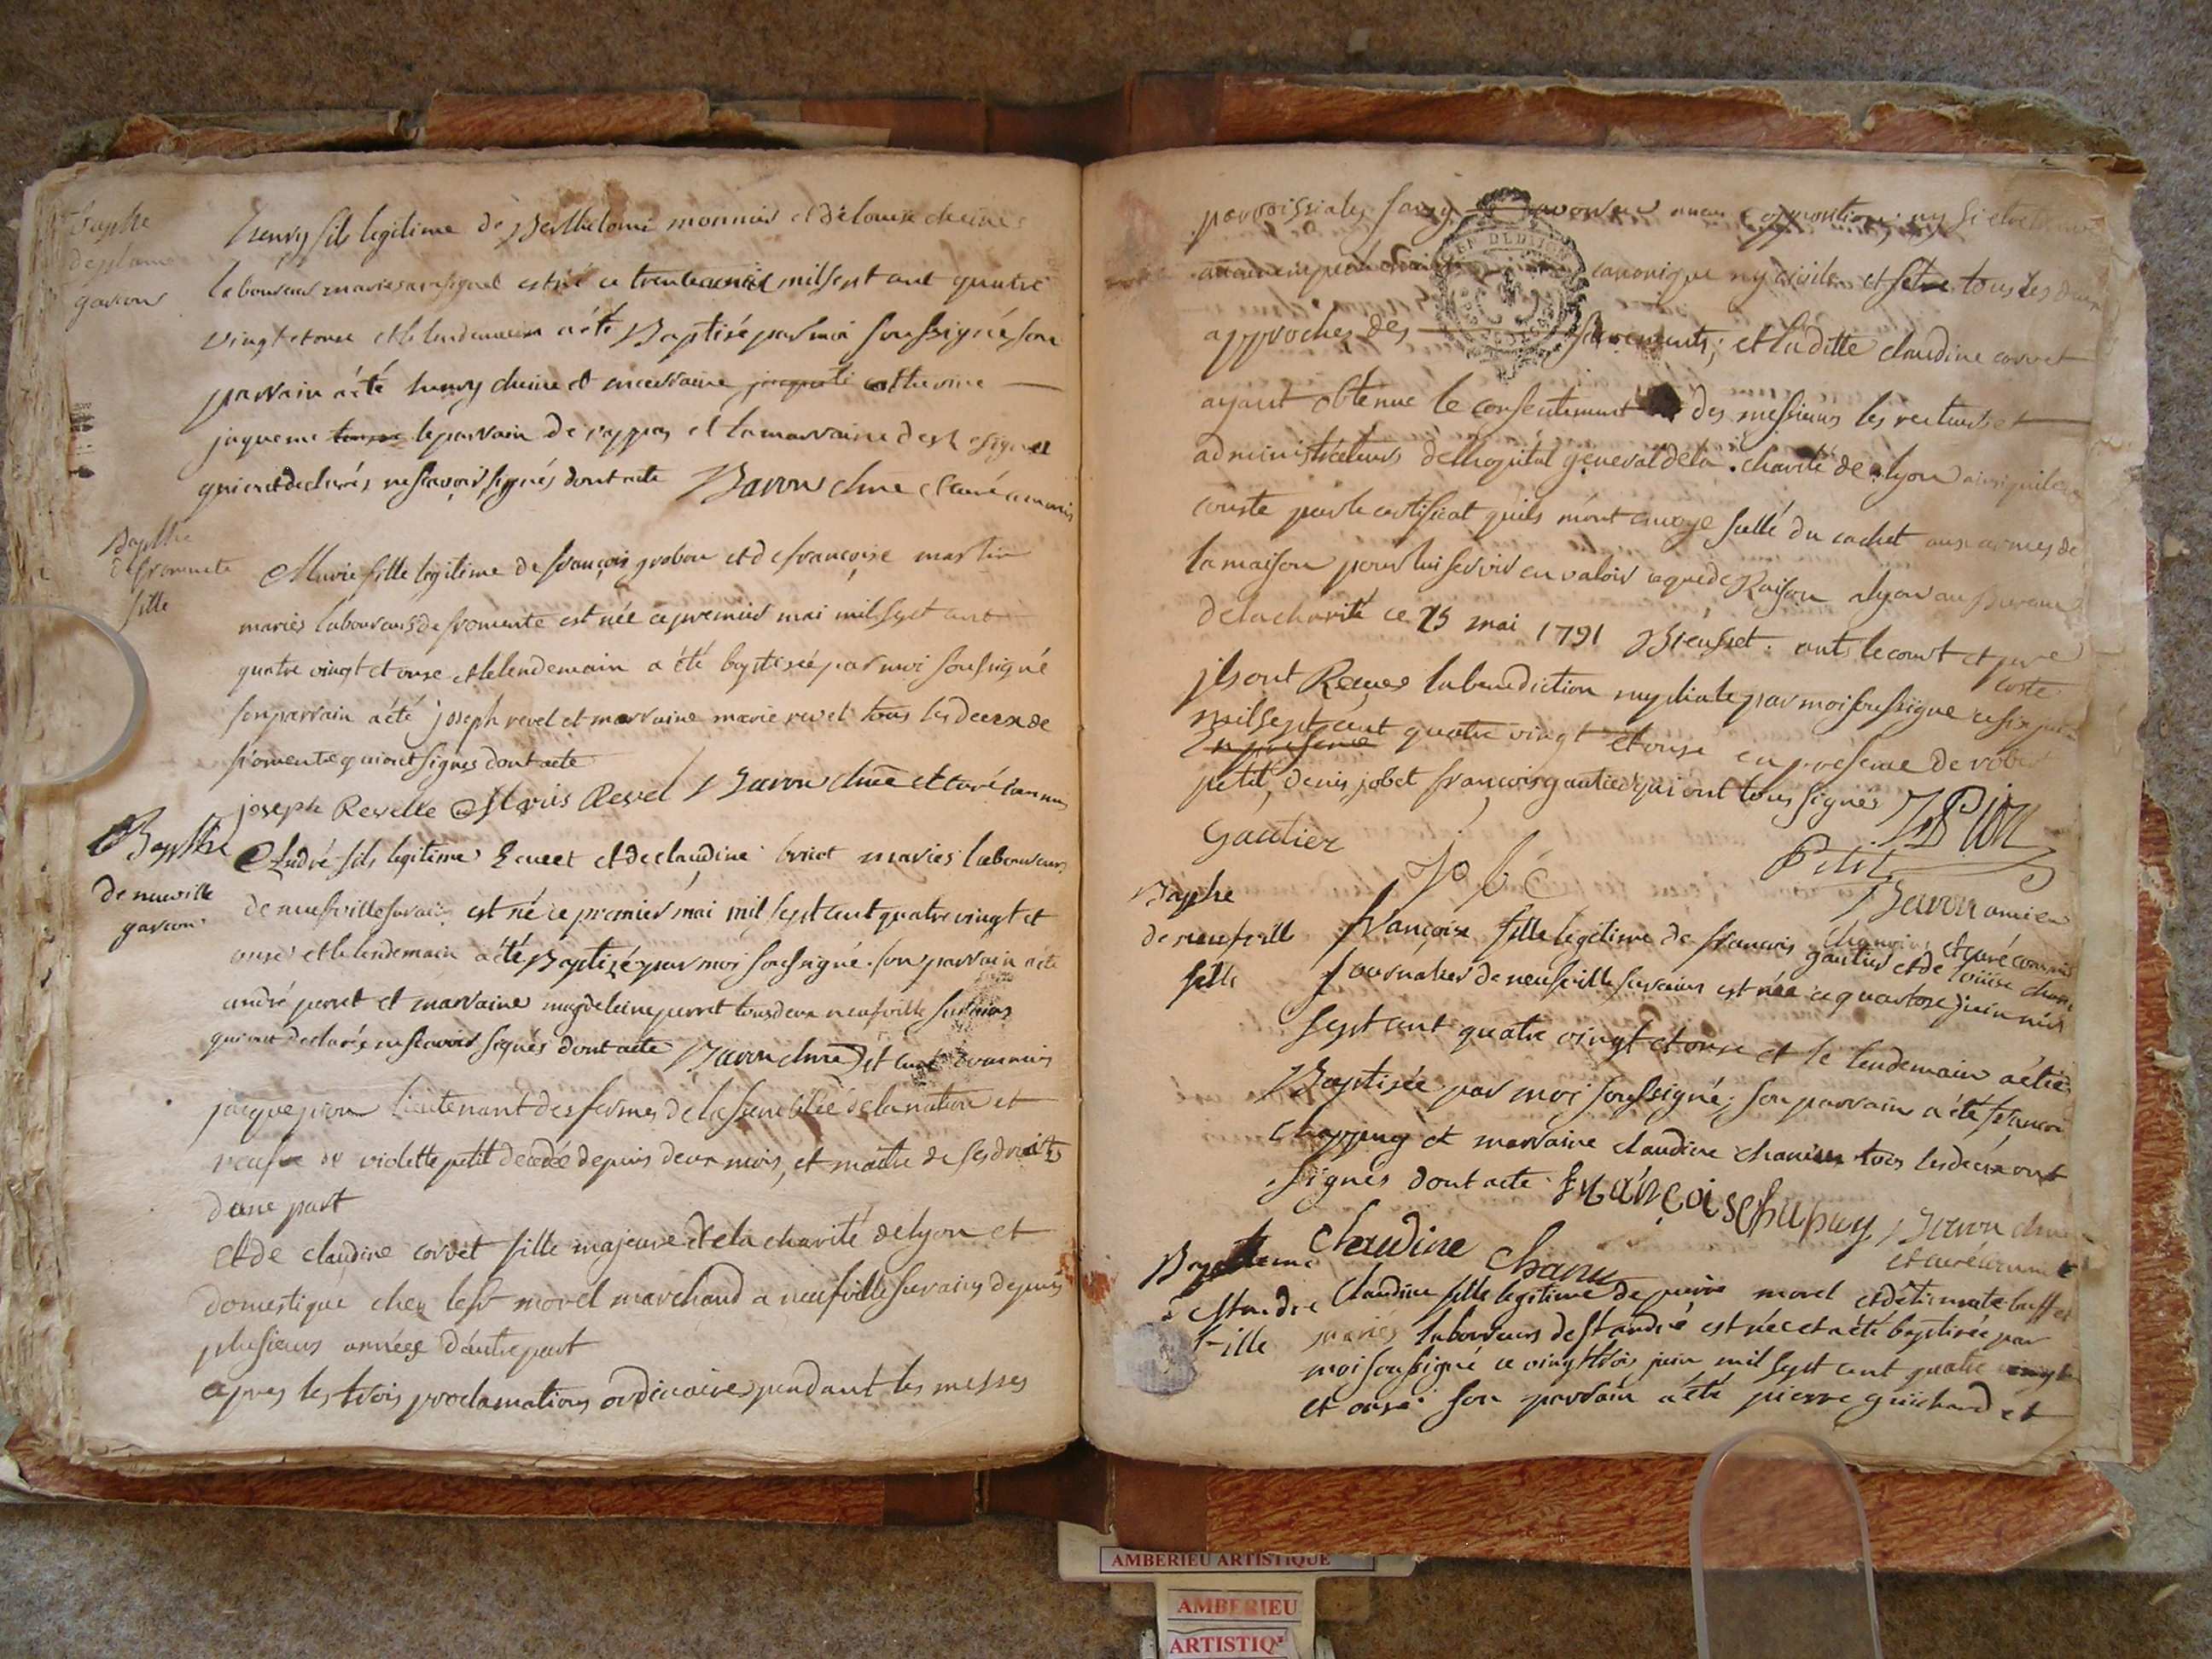 Baptke
garcon
henry fils legitime de Berthelomi monnier et de louise cheine
laboureur maries est né ce trente mil sept cent quatre
vingt et onse et le lendemain a été Baptisé par moi soussigné son
parrain a été henry cheine et marraine catherine
jaqueme le parrain de et la marraine de
qui ont declarés ne scavoir signés dont acte Baron chne et curé commis
Baptke
de fromente
fille
Marie fille legitime de françois grobon et de françoise martin
mariés laboureurs de fromente est née ce premier mai mil sept cent
quatre vingt et onse et le lendemain a été baptisée par moi soussigné
son parrain a été joseph revel et marraine marie revel tous les deux de
fromente qui ont signés dont acte
joseph Revelle Maris Revel Baron chne et curé commis
Baptke
de neuville
garcon
André fils legitime et de claudine maries laboureurs
de neufville surain est né ce premier mai mil sept cent quatre vingt et
onse et le lendemain a été Baptizé par moi soussigné son parrain a été
andré perret et marraine magdeleine perret tous deux neufville surains
qui ont declarés ne scavoir signés dont acte Baron chne et curé commis
jaque pion lieutenant des fermes de lassemblée de la nation et
veuf de violette petit decedé depuis deux mois, et maitre de ses droits
dune part
et de claudine corvet fille majeure de la charité de lyon et
domestique chez le sr morel marchand a neufville surains depuis
plusieurs années dautre part
apres les trois proclamations ordinaires pendant les messes
parroissiales sans avoir eu aucune opposition; ny si
aucun empechement canonique ny civile et tous les deux
approchés des sacrements; et laditte claudine corvet
ayant obtenue le consentement des messieurs les recteurs et
administrateurs de lhopital general de la charité de lyon ainsi quil
conste par le certificat quils mont envoyé scellé du cachet aux armes de
la maison pour lui servir en valoir ce que de Raison a lyon au Bureau
de la charité ce 25 mai 1791
coste
ils ont Reçues la benediction nuptiale par moi soussigné ce six juin
mil sept cent quatre vingt et onse en presence de robert
petit, denis jobet françois gautier qui ont tous signés
Gautier Jobé Petit JPion
Baron
et curé commis
Baptke
de neufville
fille
françoise fille legitime de francois gautier et de louise
journalier de neufville surains est née ce quatorse juin mil
sept cent quatre vingt et onse et le lendemain a été
Baptisée par moi soussigné; son parrain a été francois
chappuy et marraine claudine chanu tous les deux ont
signés dont acte françoise Chapuy Baron chne
et curé commis
Claudine Chanu
Bapteme
St andre
fille
Claudine fille legitime de pierre morel et detiennete buffet
mariés laboureurs de st andré est née et a été baptisée par
moi soussigné ce vingt trois juin mil sept cent quatre vingt
et onse son parrain a été pierre guichard et
AMBERIEU ARTISTIQUE
AMBERIEU
ARTISTIQ